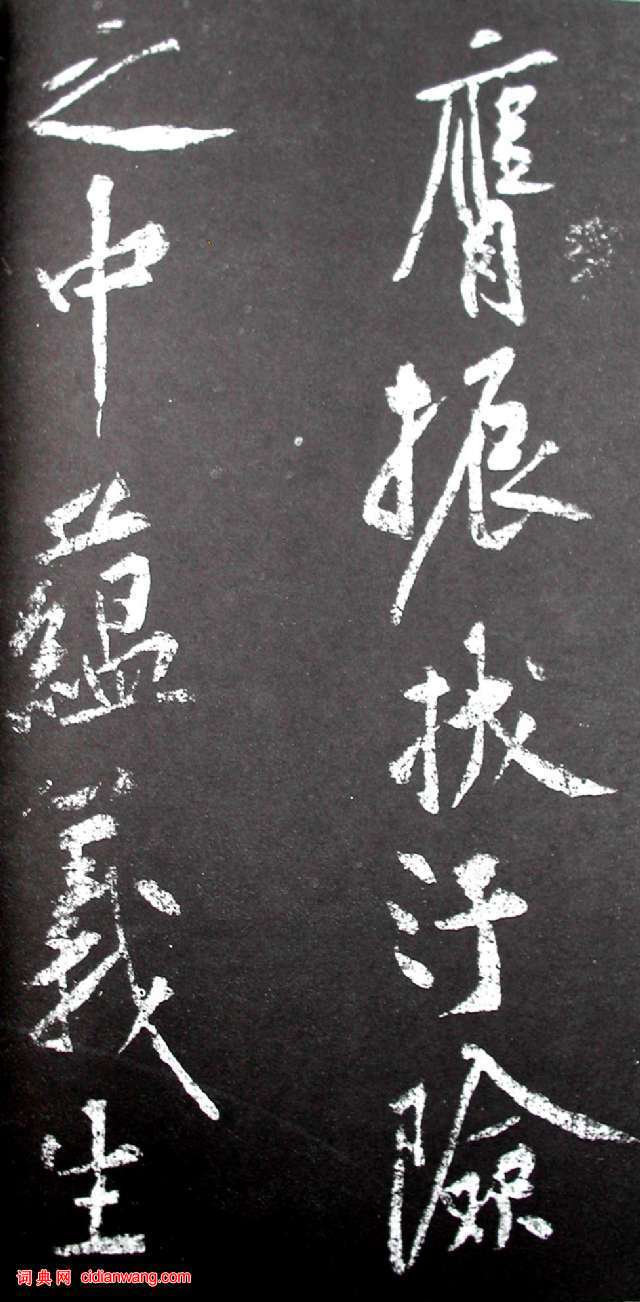 膺振拔汙險
之中蘊義生
词典网 cidianwang.com